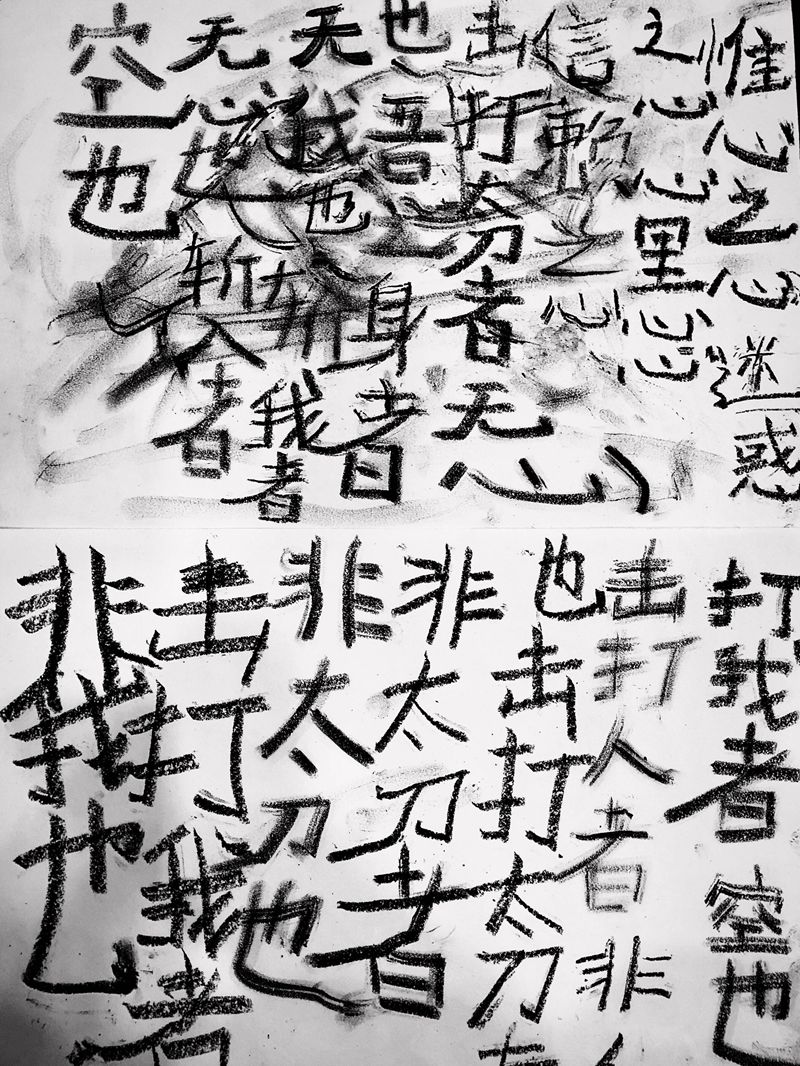 惟心之心迷惑
之心心里心心
信之心
击打太刀者无心
也吾身者
无我也我者
无心也斩人者
空也
打我者空也
击打人者非
也击打太刀
非太刀者
非太刀也
击打我者
非我也